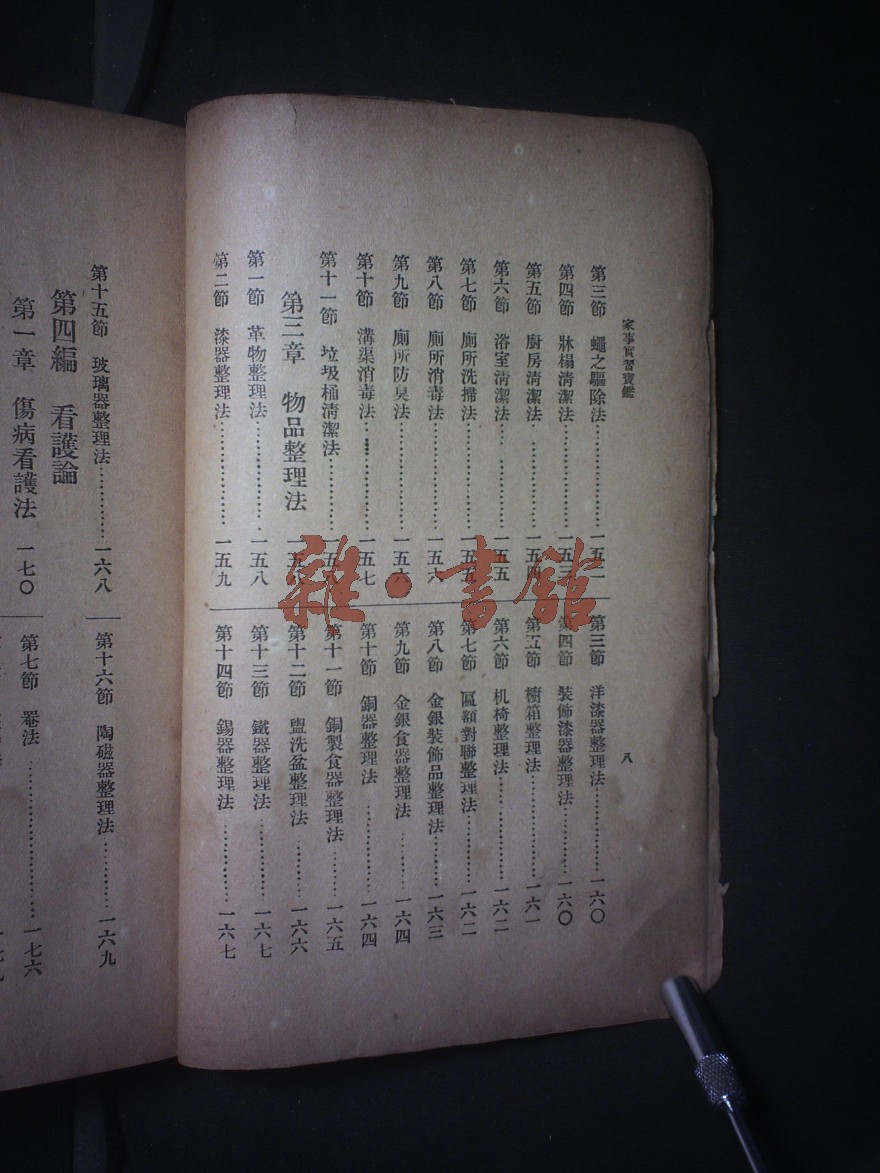 家事實習寶鑑
八
第三節　蠅之驅除法…………一五二
第四節　牀榻清潔法…………一五三
第五節　厨房清潔法…………一五四
第六節　浴室清潔法…………一五五
第七節　廁所洗掃法…………一五五
第八節　廁所消毒法…………一五六
第九節　廁所防臭法…………一五六
第十節　溝渠消毒法…………一五七
第十一節　垃圾桶清潔法…………一五八
第三章　物品整理法　一五八
第一節　革物整理法…………一五八
第二節　漆器整理法…………一五九
第三節　洋漆器整理法…………一六〇
第四節　裝飾漆器整理法…………一六〇
第五節　櫥箱整理法…………一六一
第六節　机椅整理法…………一六二
第七節　匾額對聯整理法…………一六二
第八節　金銀裝飾品整理法…………一六三
第九節　金銀食器整理法…………一六四
第十節　銅器整理法…………一六四
第十一節　銅製食器整理法…………一六五
第十二節　盥洗盆整理法…………一六六
第十三節　鐵器整理法…………一六七
第十四節　錫器整理法…………一六七
第十五節　玻璃器整理法…………一六八
第四編　看護論
第一章　傷病看護法　一七〇
第十六節　陶磁器整理法…………一六九
第七節　罨法…………一七六
雜·書館